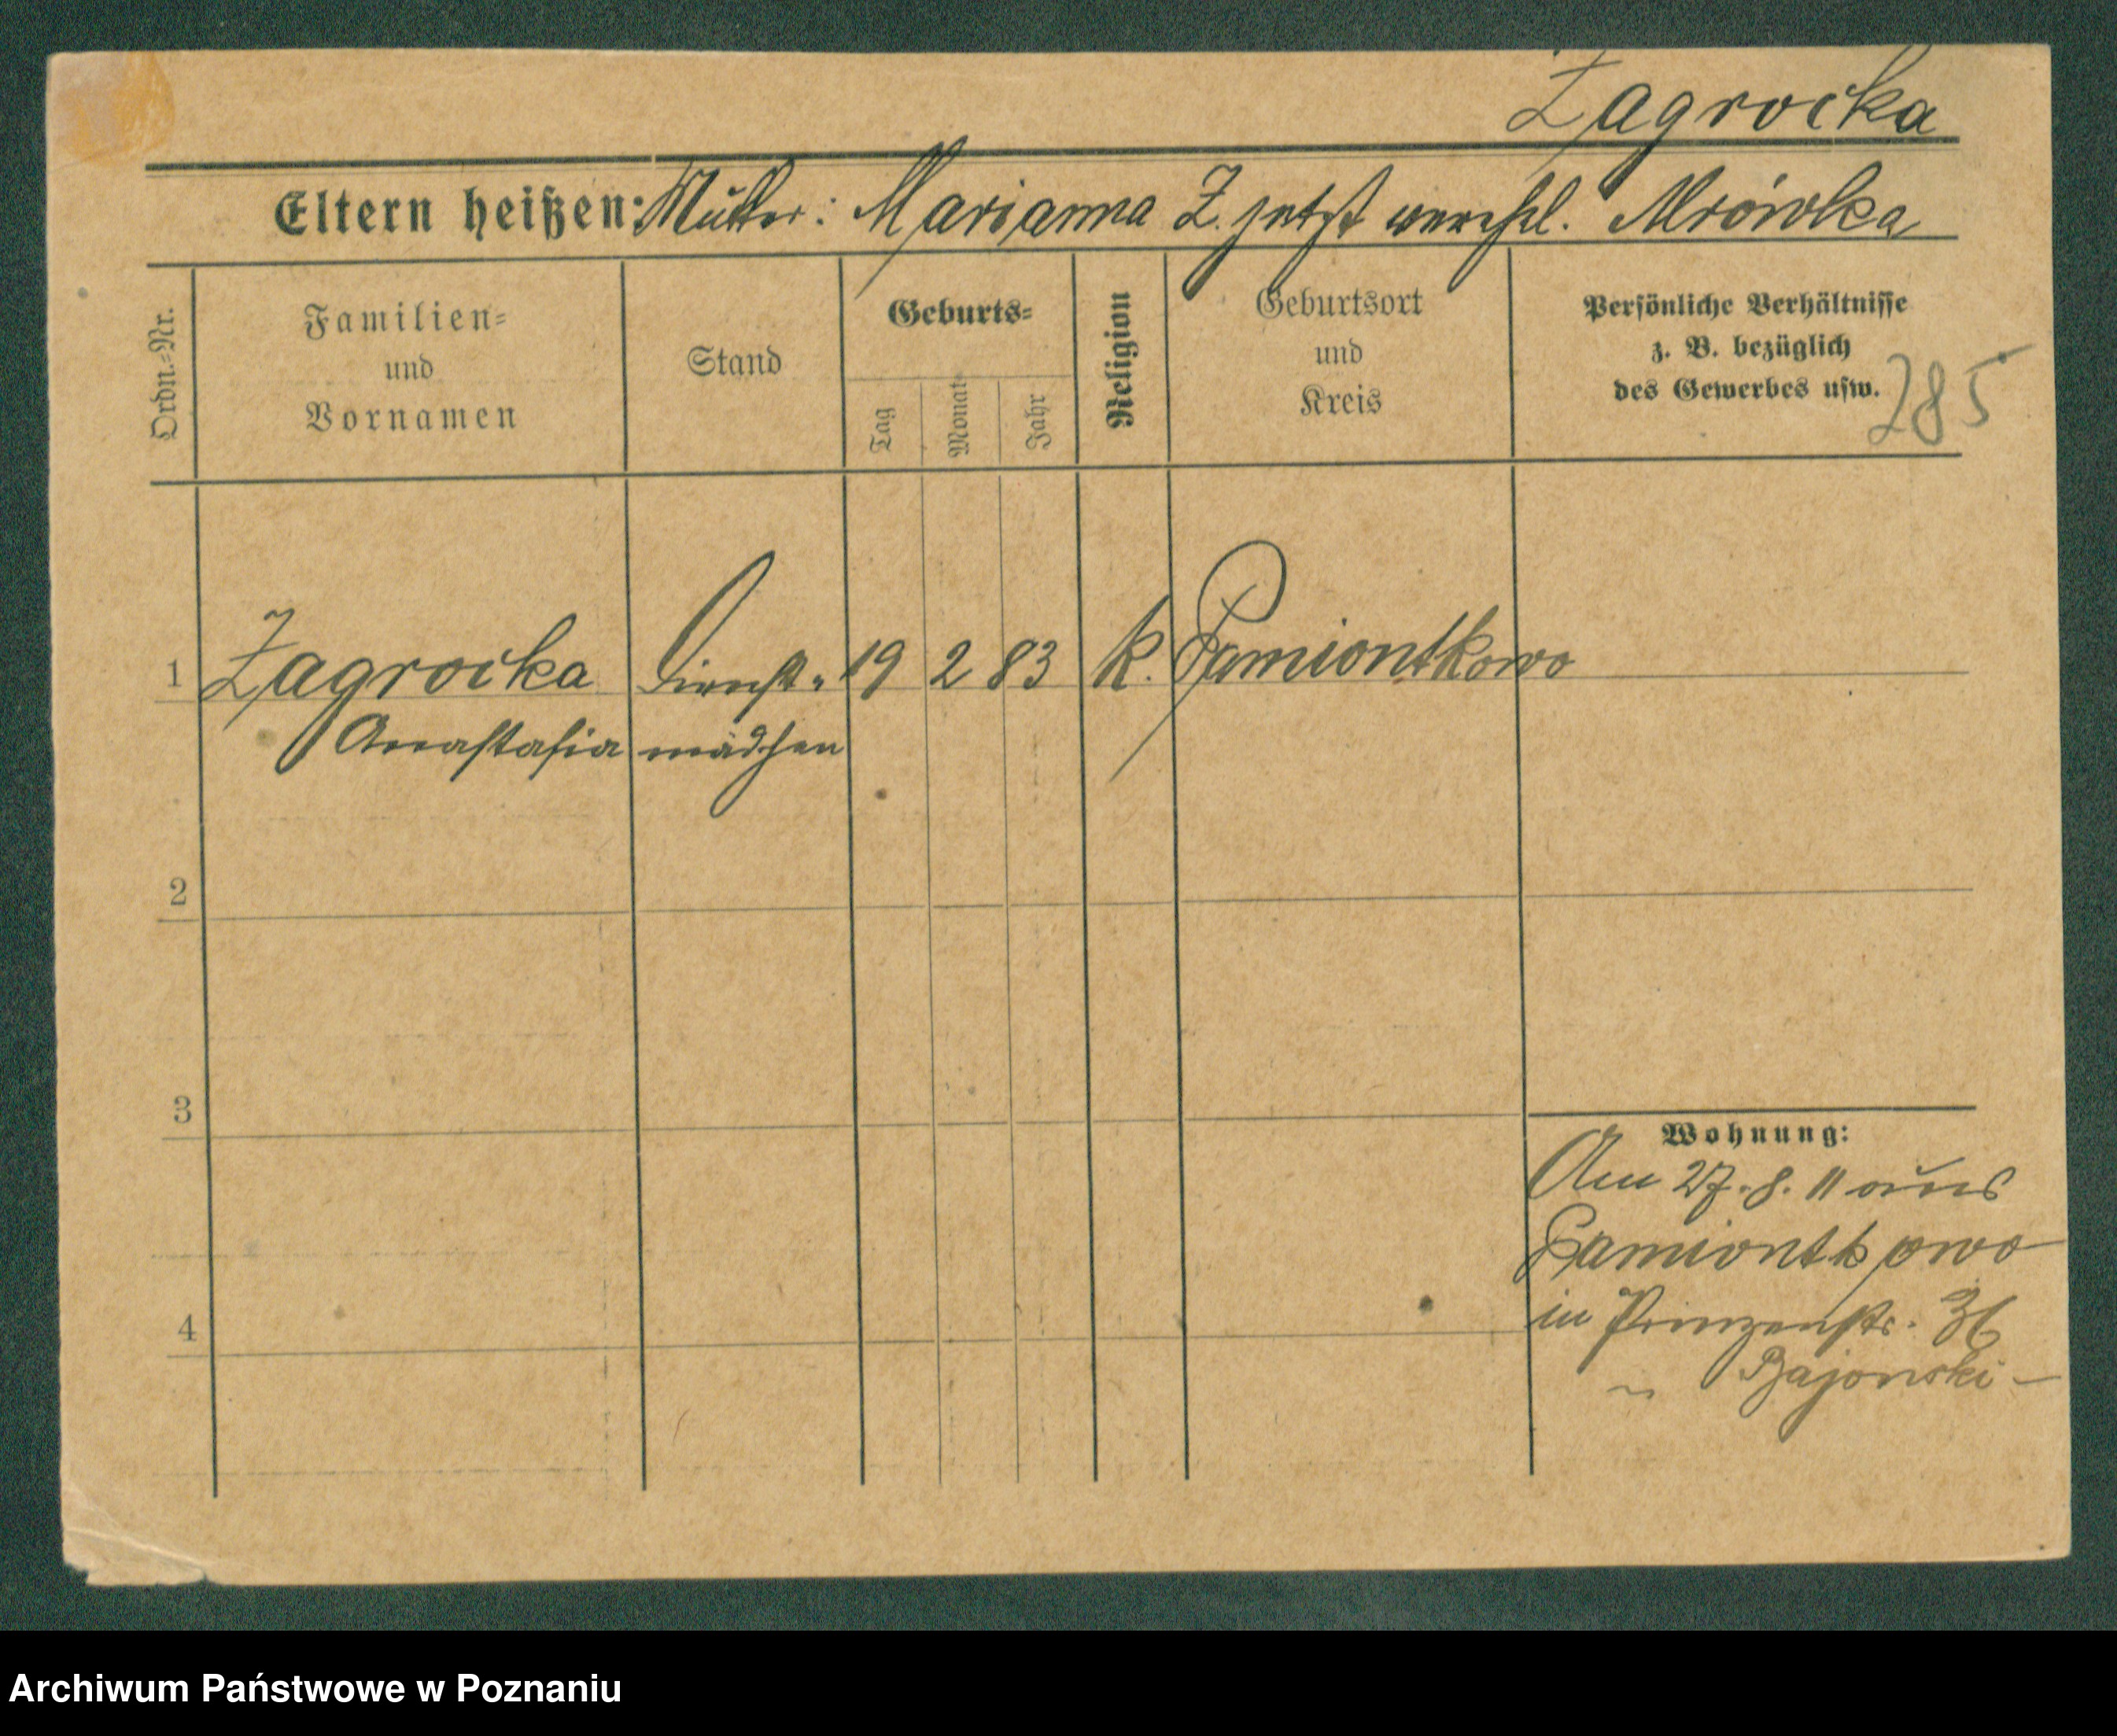 Zagrocka
Eltern heißen: Mutter: Marianna Z. jetzt verehel. Mrówka
Ordn.=Nr.
Familien=
und
Vornamen
Stand
Geburts=
Tag
Monat
Jahr
Religion
Geburtsort
und
Kreis
Persönliche Verhältnisse
z. B. bezüglich
des Gewerbes usw.
285
1 Zagrocka Dienst= 19 2 83 k. Pamiontkowo
Anastasia mädchen
2
3
Wohnung:
Am 27.8.11 aus
Pamiontkowo
in Prinzenstr. 36
4
~ Bajonski –
Archiwum Państwowe w Poznaniu